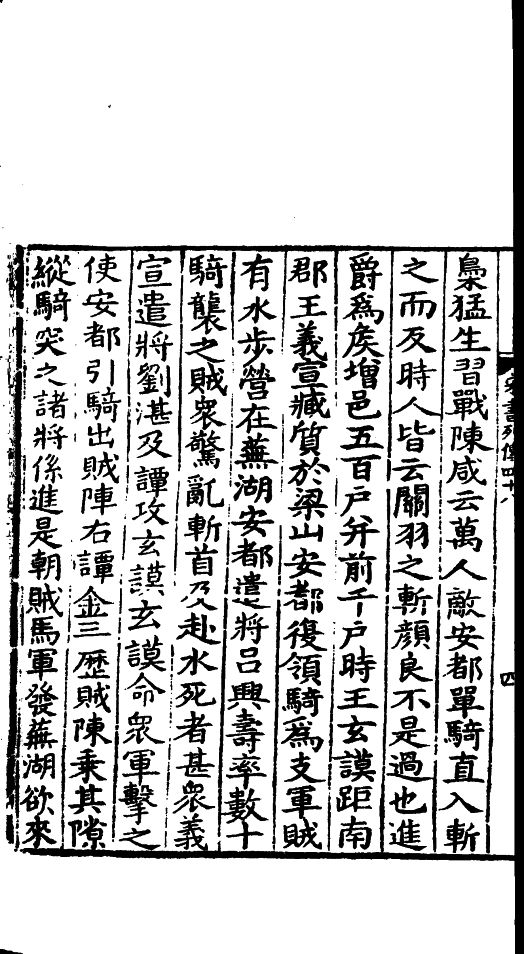 梟猛生習戰陳咸云萬人敵安都單騎直入斬
之而反時人皆云關羽之斬顏良不是過也進
爵爲矦增邑五百戶并前千戶時王玄謨距南
郡王義宣臧質於梁山安都復領騎爲支軍賊
有水步營在蕪湖安都遣將呂興壽率數十
騎襲之賊衆驚亂斬首及赴水死者甚衆義
宣遣將劉湛及譚攻玄謨玄謨命衆軍擊之
使安都引騎出賊陣右譚金三歷賊陳乘其隙
縱騎突之諸將係進是朝賊馬軍發蕪湖欲來
書列傳四十八
四